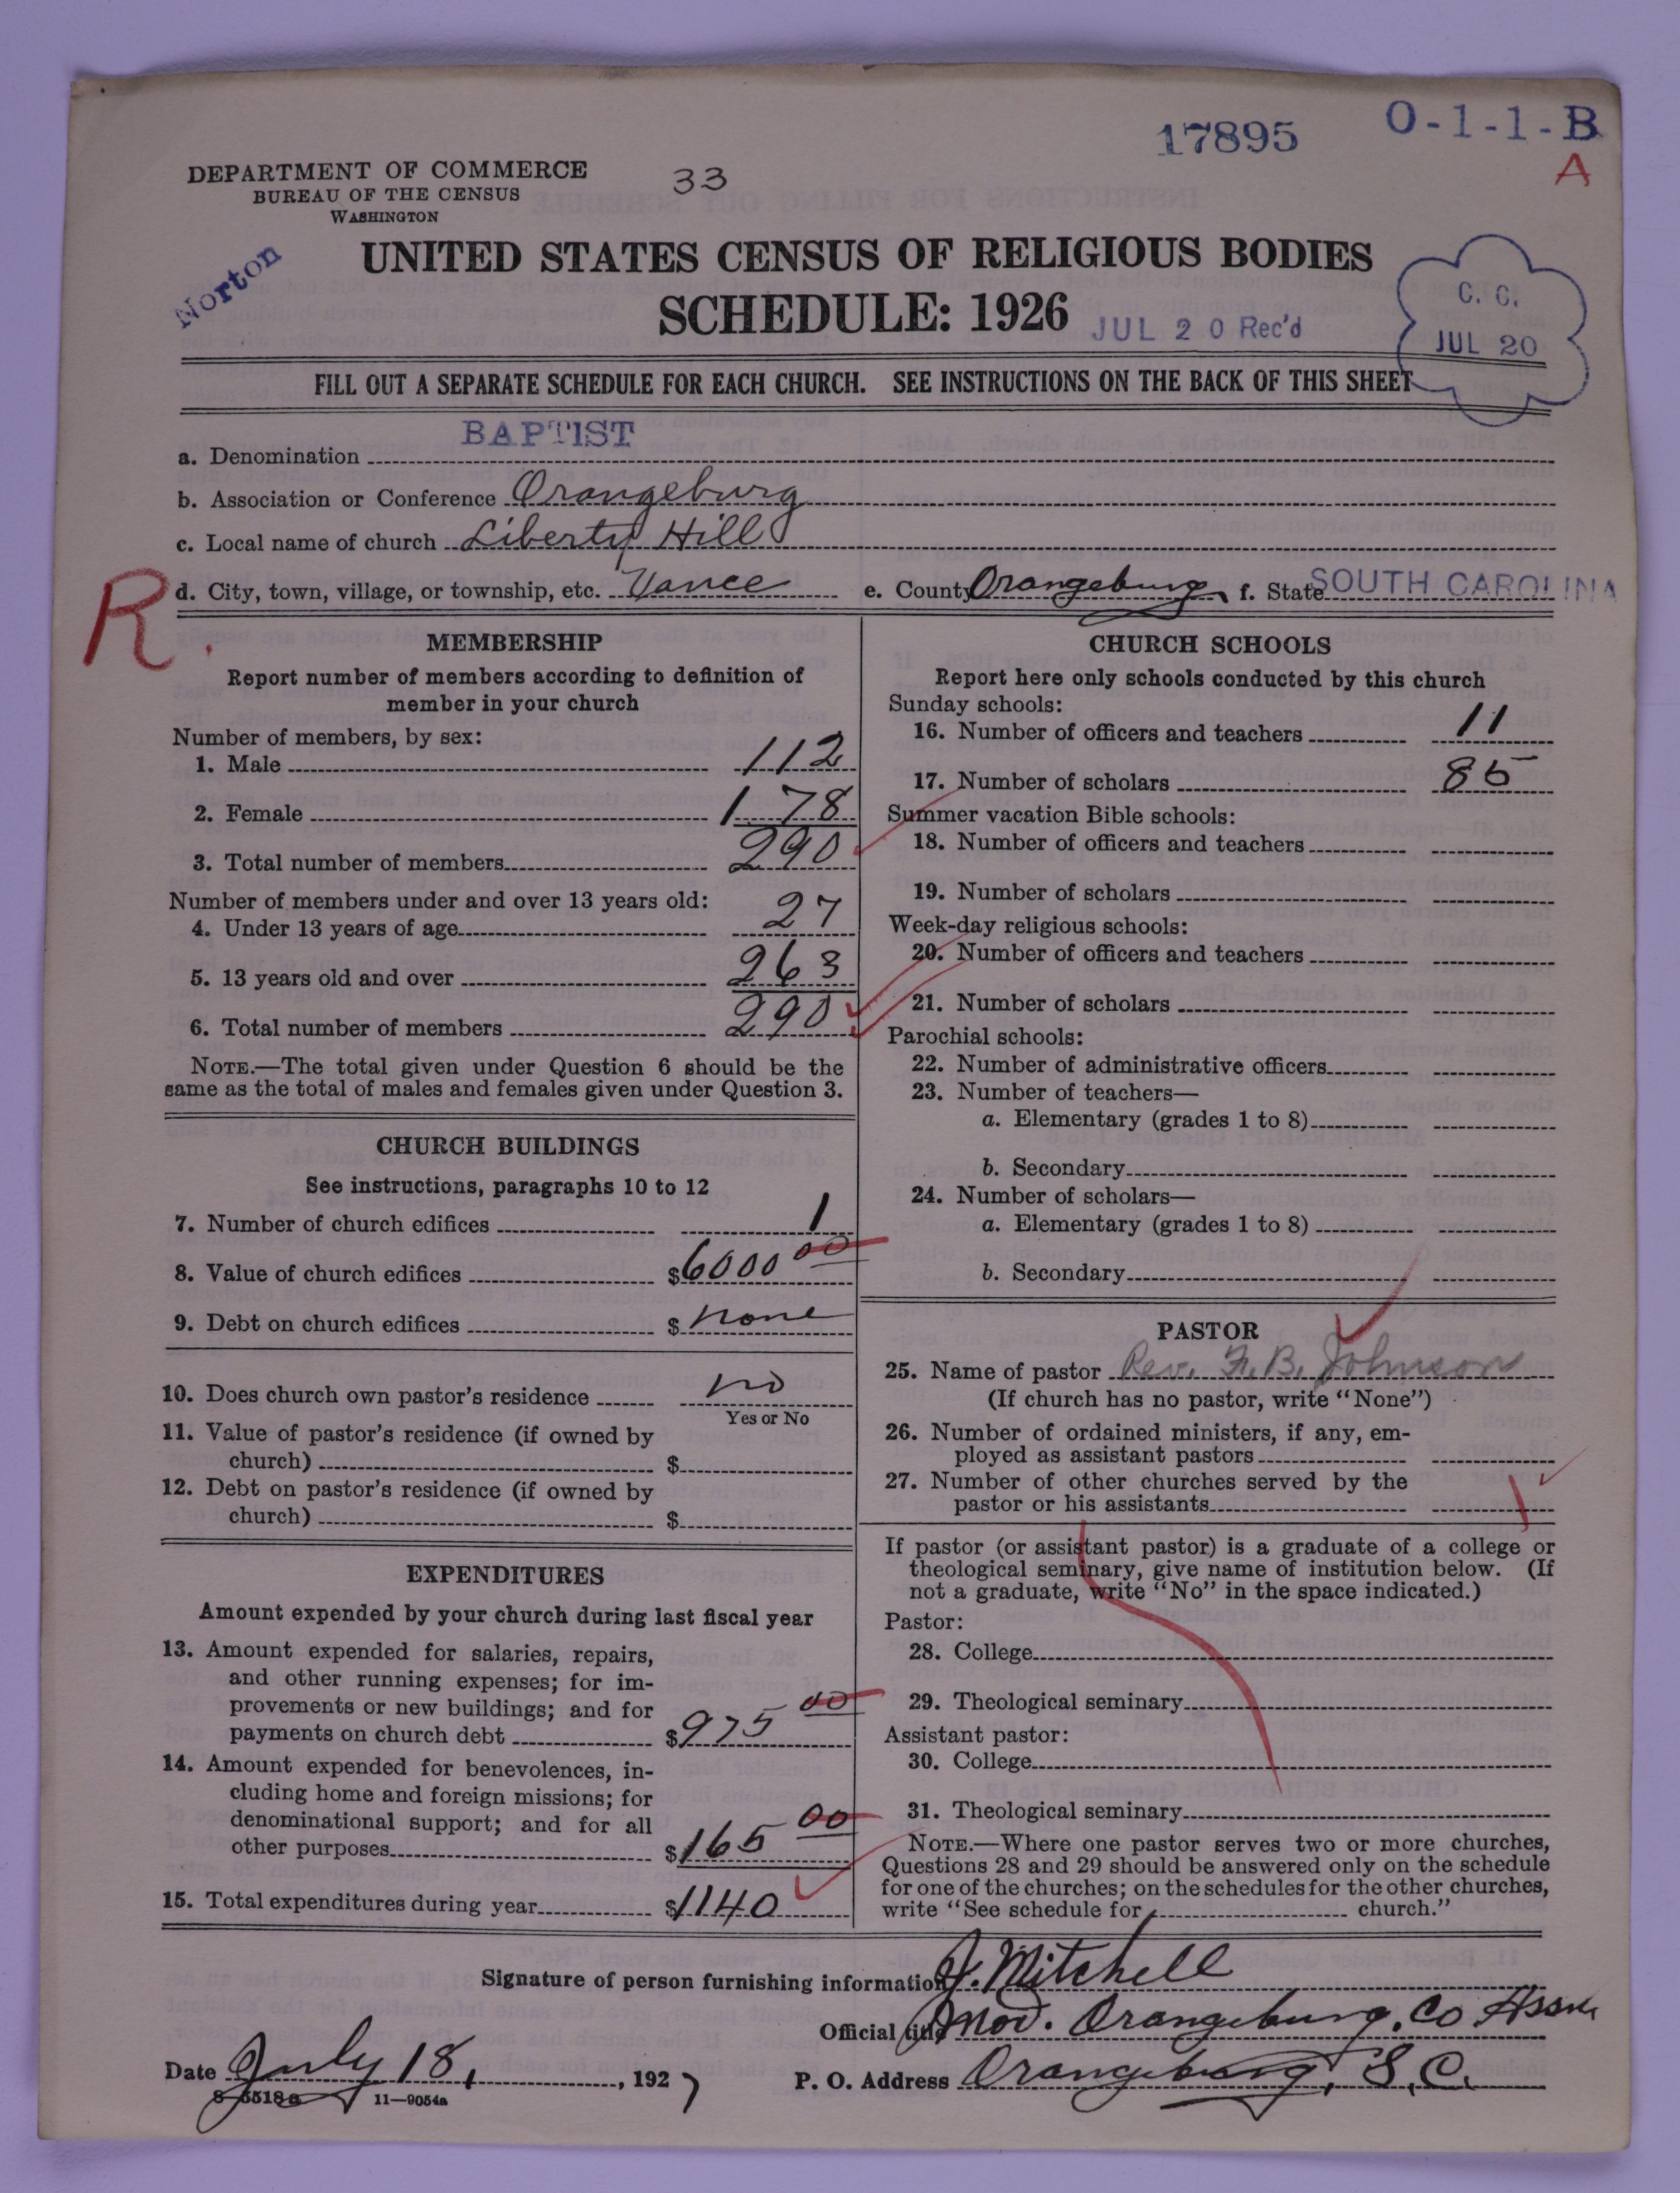 17895
O-1-1-B
A
DEPARTMENT OF COMMERCE
BUREAU OF THE CENSUS
WASHINGTON
33
Norton
UNITED STATES CENSUS OF RELIGIOUS BODIES
SCHEDULE: 1926
JUL 20 Rec'd
C. C.
JUL 20
FILL OUT A SEPARATE SCHEDULE FOR EACH CHURCH. SEE INSTRUCTIONS ON THE BACK OF THIS SHEET
a. Denomination BAPTIST
b. Association or Conference Orangeburg
c. Local name of church Liberty Hill
d. City, town, village, or township, etc. Vance e. County Orangeburg f. State SOUTH CAROLINA
R.
MEMBERSHIP
Report number of members according to definition of
member in your church
Number of members, by sex:
1. Male 112
2. Female 178
3. Total number of members 290
Number of members under and over 13 years old:
4. Under 13 years of age 27
5. 13 years old and over 263
6. Total number of members 290
NOTE.—The total given under Question 6 should be the
same as the total of males and females given under Question 3.
CHURCH BUILDINGS
See instructions, paragraphs 10 to 12
7. Number of church edifices 1
8. Value of church edifices $6000 00
9. Debt on church edifices $ none
10. Does church own pastor's residence no
Yes or No
11. Value of pastor's residence (if owned by
church) $
12. Debt on pastor's residence (if owned by
church) $
EXPENDITURES
Amount expended by your church during last fiscal year
13. Amount expended for salaries, repairs,
and other running expenses; for im-
provements or new buildings; and for
payments on church debt $975 00
14. Amount expended for benevolences, in-
cluding home and foreign missions; for
denominational support; and for all
other purposes $165 00
15. Total expenditures during year $1140
CHURCH SCHOOLS
Report here only schools conducted by this church
Sunday schools:
16. Number of officers and teachers 11
17. Number of scholars 85
Summer vacation Bible schools:
18. Number of officers and teachers
19. Number of scholars
Week-day religious schools:
20. Number of officers and teachers
21. Number of scholars
Parochial schools:
22. Number of administrative officers
23. Number of teachers—
a. Elementary (grades 1 to 8)
b. Secondary
24. Number of scholars—
a. Elementary (grades 1 to 8)
b. Secondary
PASTOR
25. Name of pastor Rev. F. B. Johnson
(If church has no pastor, write "None")
26. Number of ordained ministers, if any, em-
ployed as assistant pastors
27. Number of other churches served by the
pastor or his assistants
If pastor (or assistant pastor) is a graduate of a college or
theological seminary, give name of institution below. (If
not a graduate, write "No" in the space indicated.)
Pastor:
28. College
29. Theological seminary
Assistant pastor:
30. College
31. Theological seminary
NOTE.—Where one pastor serves two or more churches,
Questions 28 and 29 should be answered only on the schedule
for one of the churches; on the schedules for the other churches,
write "See schedule for church."
Signature of person furnishing information J. Mitchell
Official title Mod. Orangeburg. Co Assn
Date July 18, 1927
P. O. Address Orangeburg, S. C.
8-5518a 11—9054a